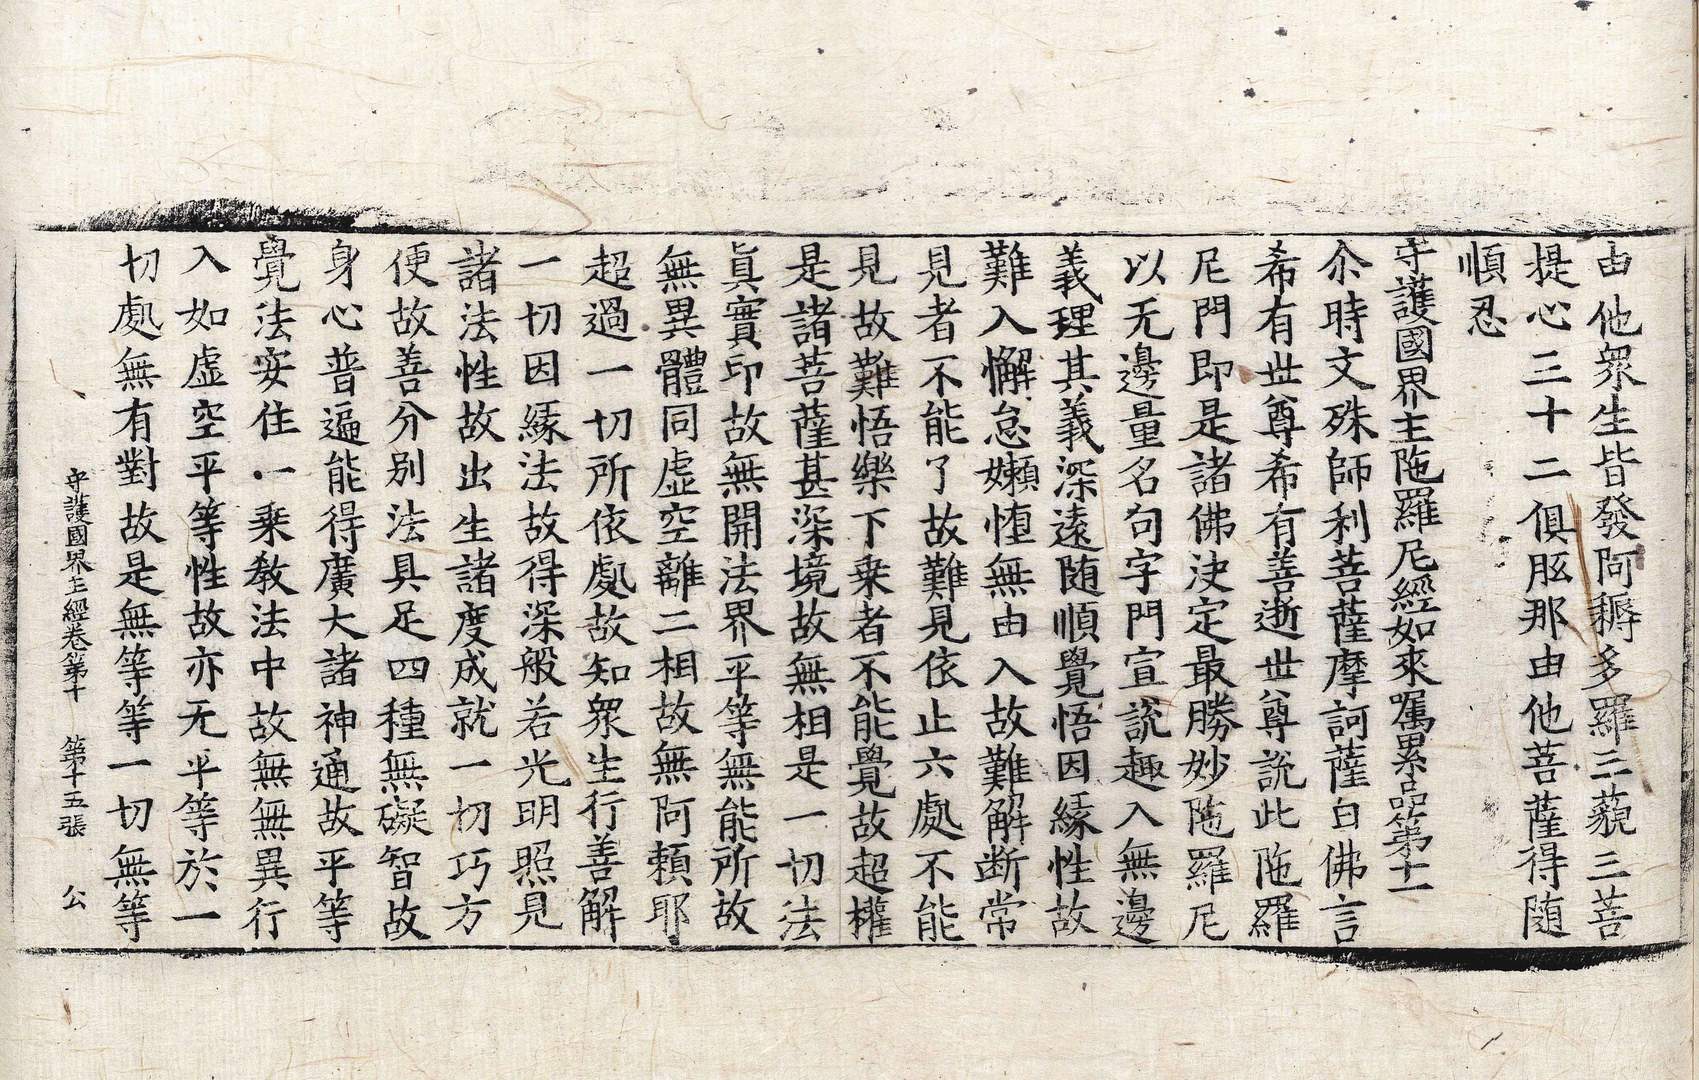 由他衆生皆發阿耨多羅三藐三菩
提心三十二俱胝那由他菩薩得随
順忍
守護國界主陁羅尼經如來囑累品第十一
尒時文殊師利菩薩摩訶薩白佛言
希有世尊希有善逝世尊說此陁羅
尼門即是諸佛決定最勝妙陁羅尼
以无邊量名句字門宣說趣入無邊
義理其義深遠随順覺悟因緣性故
難入懈怠嬾惰無由入故難解断常
見者不能了故難見依止六處不能
見故難悟樂下乗者不能覺故超權
是諸菩薩甚深境故無相是一切法
眞實印故無開法界平等無能所故
無異體同虛空離二相故無阿頼耶
超過一切所依處故知衆生行善解
一切因緣法故得深般若光明照見
諸法性故出生諸度成就一切巧方
便故善分別法具足四種無礙智故
身心普遍能得廣大諸神通故平等
覺法安住一乗教法中故無無異行
入如虛空平等性故亦无平等於一
切處無有對故是無等等一切無等
守護國界主經卷第十　第十五張　公